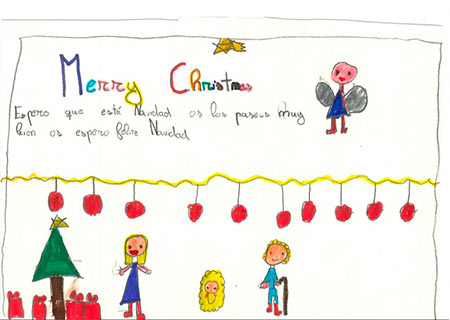 Merry Christmas
Espero que está Navidad os los paseis muy
bien os espero feliz Navidad